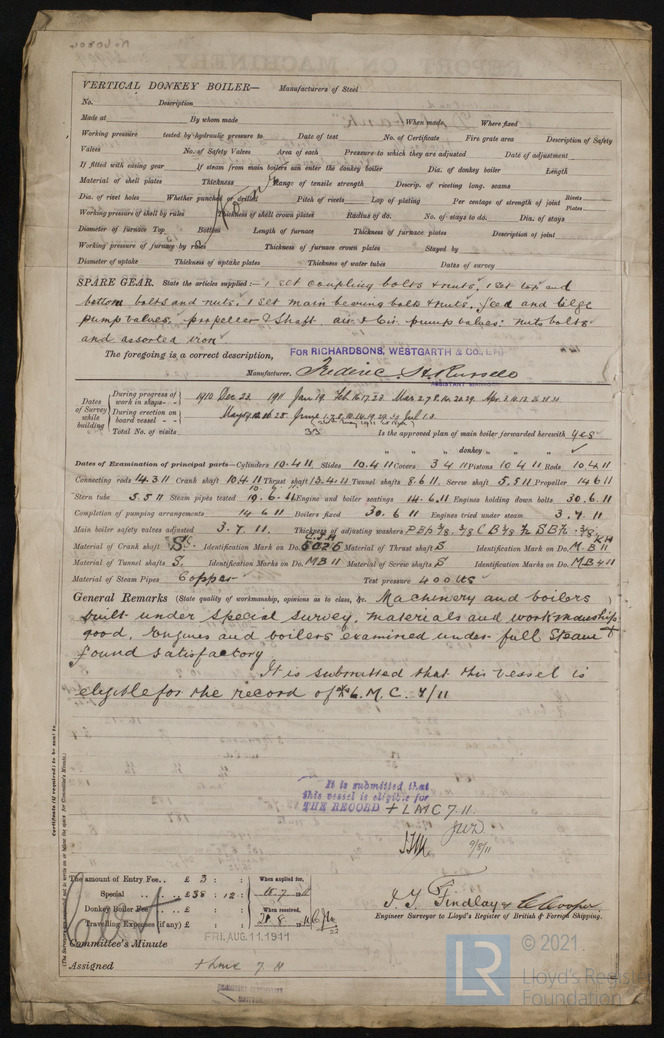 VERTICAL DONKEY BOILER— Manufacturers of Steel
No. Description
Made at By whom made When made Where fixed
Working pressure tested by hydraulic pressure to Date of test No. of Certificate Fire grate area Description of Safety
Valves No. of Safety Valves Area of each Pressure to which they are adjusted Date of adjustment
If fitted with easing gear If steam from main boilers can enter the donkey boiler Dia. of donkey boiler Length
Material of shell plates Thickness Range of tensile strength Descrip. of riveting long. seams
Dia. of rivet holes Whether punched or drilled Pitch of rivets Lap of plating Per centage of strength of joint Rivets Plates
Working pressure of shell by rules Thickness of shell crown plates Radius of do. No. of stays to do. Dia. of stays
Diameter of furnace Top Bottom Length of furnace Thickness of furnace plates Description of joint
Working pressure of furnace by rules Thickness of furnace crown plates Stayed by
Diameter of uptake Thickness of uptake plates Thickness of water tubes Dates of survey
SPARE GEAR. State the articles supplied:— 1 set coupling bolts & nuts. 1 set top and
bottom bolts and nuts. 1 set main bearing bolts & nuts. feed and bilge
pump valves. propeller & shaft. air & cir. pump valves: nuts bolts
and assorted iron
The foregoing is a correct description, FOR RICHARDSONS, WESTGARTH & CO., LTD
Manufacturer. Frederic H. Russell
ASSISTANT MANAGER
Dates of Survey while building
During progress of work in shops— 1910 Dec 23 1911 Jan 19 Feb 16 17 23 Mar 2 7 8 14 20 29
During erection on board vessel
Total No. of visits 33 Is the approved plan of main boiler forwarded herewith yes
" " " donkey " " "
Dates of Examination of principal parts—Cylinders 10.4.11 Slides 10.4.11 Covers 3 4 11 Pistons 10 4 11 Rods 10.4.11
Connecting rods 14.3.11 Crank shaft 10.4.11 Thrust shaft 13.4.11 Tunnel shafts 8.6.11 Screw shaft 5.5.11 Propeller 14 6 11
Stern tube 5.5.11 Steam pipes tested 19.6.11 Engine and boiler seatings 14.6.11 Engines holding down bolts 30.6.11
Completion of pumping arrangements 14 6 11 Boilers fixed 30.6.11 Engines tried under steam 3.7.11
Main boiler safety valves adjusted 3.7.11. Thickness of adjusting washers
Material of Crank shaft S. Identification Mark on Do. 5026 Material of Thrust shaft S Identification Mark on Do. M.B 11
Material of Tunnel shafts S. Identification Marks on Do. MB 11 Material of Screw shafts S Identification Marks on Do. M.B 4 11
Material of Steam Pipes Copper Test pressure 400 lbs
General Remarks (State quality of workmanship, opinions as to class, &c. Machinery and boilers
built under special survey, materials and workmanship
good, Engines and boilers examined under full steam &
found satisfactory
It is submitted that this vessel is
eligible for the record of + L.M.C. 7/11
It is submitted that
this vessel is eligible for
THE RECORD + LMC 7.11.
JWD
9/8/11
The amount of Entry Fee.. £ 3 : : When applied for,
Special .. .. £ 38 : 12 : 18.7.11
Donkey Boiler Fee .. .. £ : : When received,
Travelling Expenses (if any) £ : : 21.8.11
J. T. Findlay & C. Cooper
Engineer Surveyor to Lloyd's Register of British & Foreign Shipping.
Committee's Minute FRI. AUG. 11 1911
Assigned + LMC 7.11
Certificate (if required) to be sent to
© 2021
LR
Lloyd's Register
Foundation